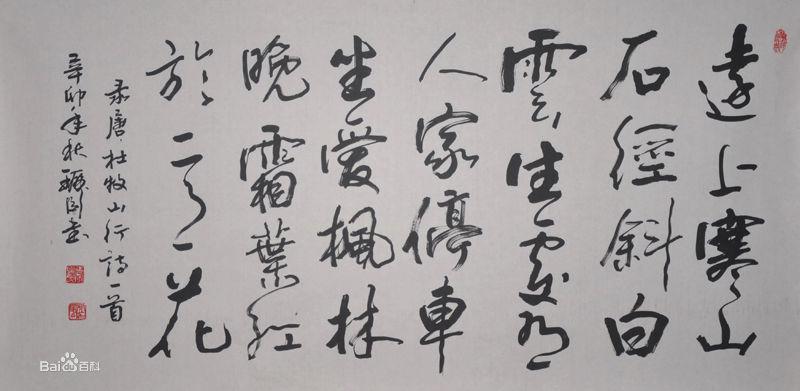 遠上寒山
石徑斜白
雲生處有
人家停車
坐愛楓林
晚霜葉紅
於二月花
录唐杜牧山行詩一首
辛卯年秋
Bai百科